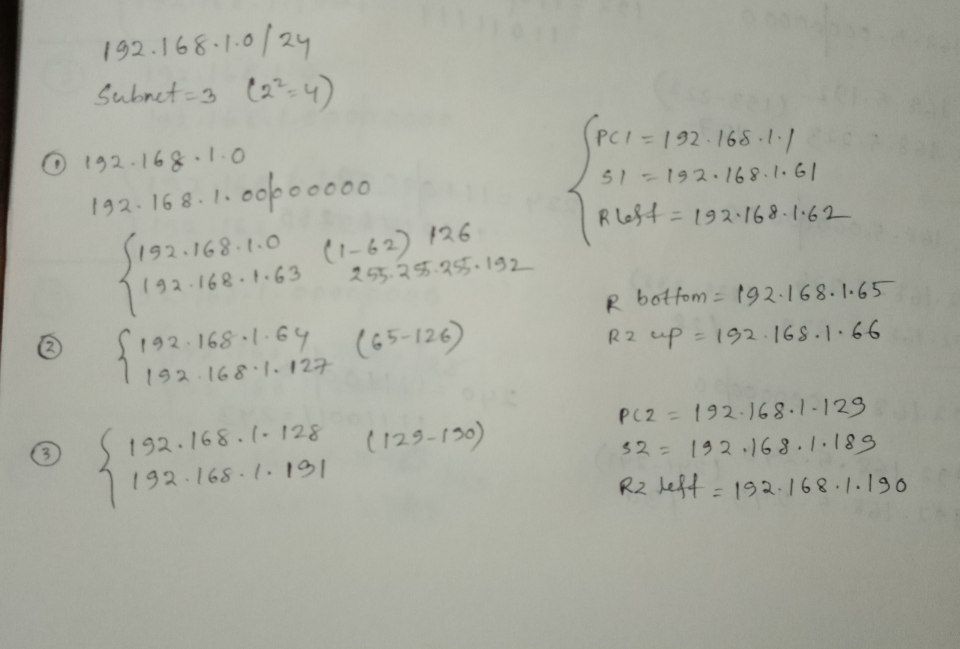 192.168.1.0/24
Subnet = 3 (2²=4)
① 192.168.1.0
192.168.1.00|000000
192.168.1.0 (1-62) 126
192.168.1.63 255.255.255.192
② 192.168.1.64 (65-126)
192.168.1.127
③ 192.168.1.128 (129-190)
192.168.1.191
PC1 = 192.168.1.1
S1 = 192.168.1.61
R left = 192.168.1.62
R bottom = 192.168.1.65
R2 up = 192.168.1.66
PC2 = 192.168.1.129
S2 = 192.168.1.189
R2 left = 192.168.1.190